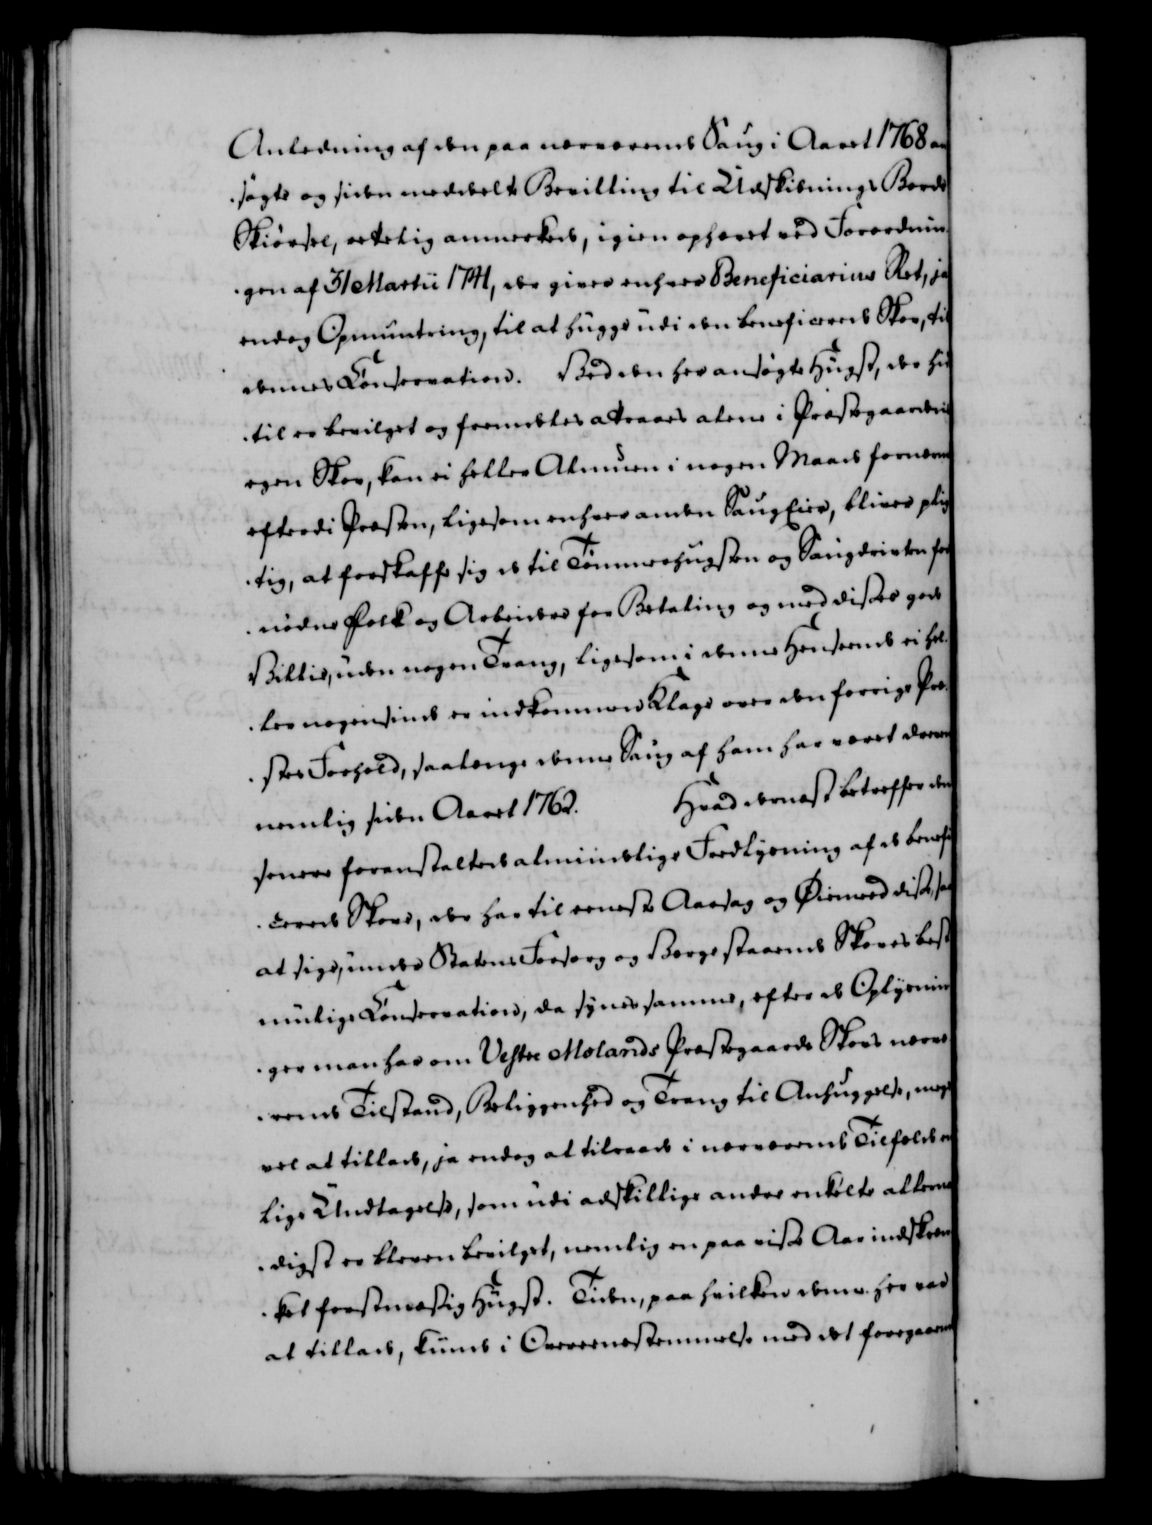 Anledning af den paa nærværende Saug i Aaret 1768 an
søgte og siden meddeelte Bevilling til Udskibnings Bords
Skiørsel, retelig anmerkede, igien ophævet ved Forordnin
gen af 31 Martii 1741, der giver enhver Beneficiarius Ret, ja
endog Opmuntring, til at hugge udi den beneficerede Skov, til
dennes Conservation. Ved den her ansøgte Hugst, der hid
til er bevilget og fremdeles attraaes alene i Præstegaardens
egen Skov, kan ei heller Almuen i nogen Maade fornærm
efterdi Præsten, ligesom enhver anden Saug Eier, bliver plig
tig, at forskaffe sig de til Tømmerhugsten og Saugdriften for
nødne Folk og Arbeidere for Betaling og med disses gode
Villie, uden nogen Tvang, ligesom i denne Henseende ei hel
ler nogensinde er indkommen Klage over den forrige Præ
stes Forhold, saalænge denne Saug af ham har været dreven
nemlig siden Aaret 1762. Hvad dernæst betreffer den
senere foranstaltede almindelige Fredlysning af de benefi
cerede Skove, der har til eeneste Aarsag og Øiemed disse, saa
at sige, under Statens Forsorg og Værge staaende Skoves best
mulige Conservation, da synes samme, efter de Oplysnin
ger man har om Vestre Molands Præstegaards Skovs nærvæ
rende Tilstand, Beliggenhed og Trang til Anhuggelse, meget
vel at tillade, ja endog at tilraade i nærværende Tilfælde en
lige Undtagelse, som udi adskillige andre enkelte allerna
digst er bleven bevilget, nemlig en paa visse Aar indskræn
ket forstmæssig Hugst. Tiden, paa hvilken denne her var
at tillade, kunde i Overeensstemmelse med det foregaaende